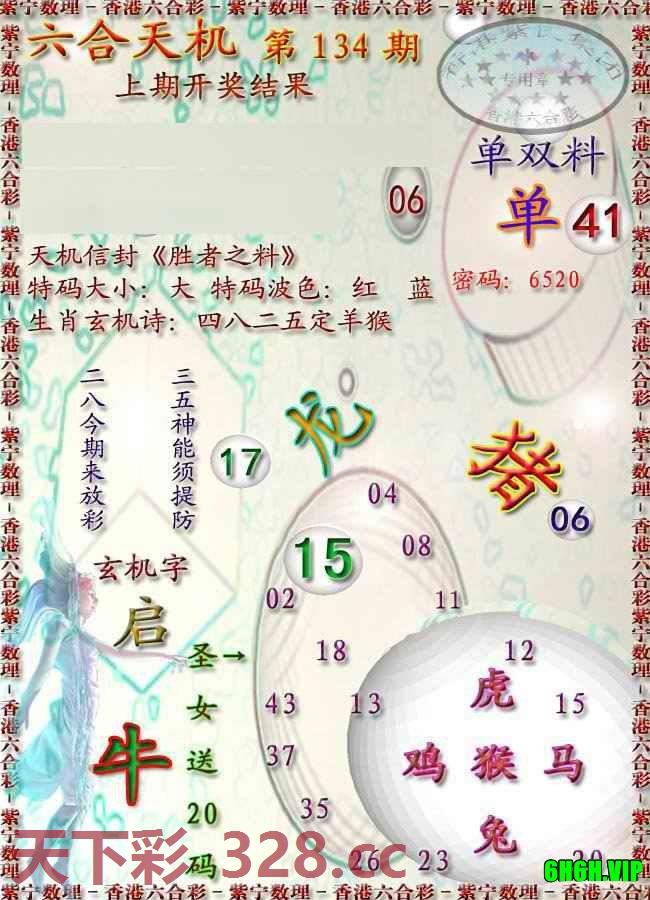 紫宁数理－香港六合彩－紫宁数理－香港六合彩－紫宁数理－香港六合彩
六合天机 第 134 期
上期开奖结果
专用章
香港六合彩
06
单双料
单 41
密码：6520
天机信封《胜者之料》
特码大小：大 特码波色：红 蓝
生肖玄机诗：四八二五定羊猴
三五神能须提防
二八今期来放彩
17
龙
猪
06
玄机字
启
牛
圣女送20码
→
15
04
08
02
11
18
12
43
13
15
37
35
26
23
20
虎
鸡 猴 马
兔
天下彩.328.cc
6H6H.VIP
紫宁数理－香港六合彩－紫宁数理－香港六合彩－紫宁数理－香港六合彩